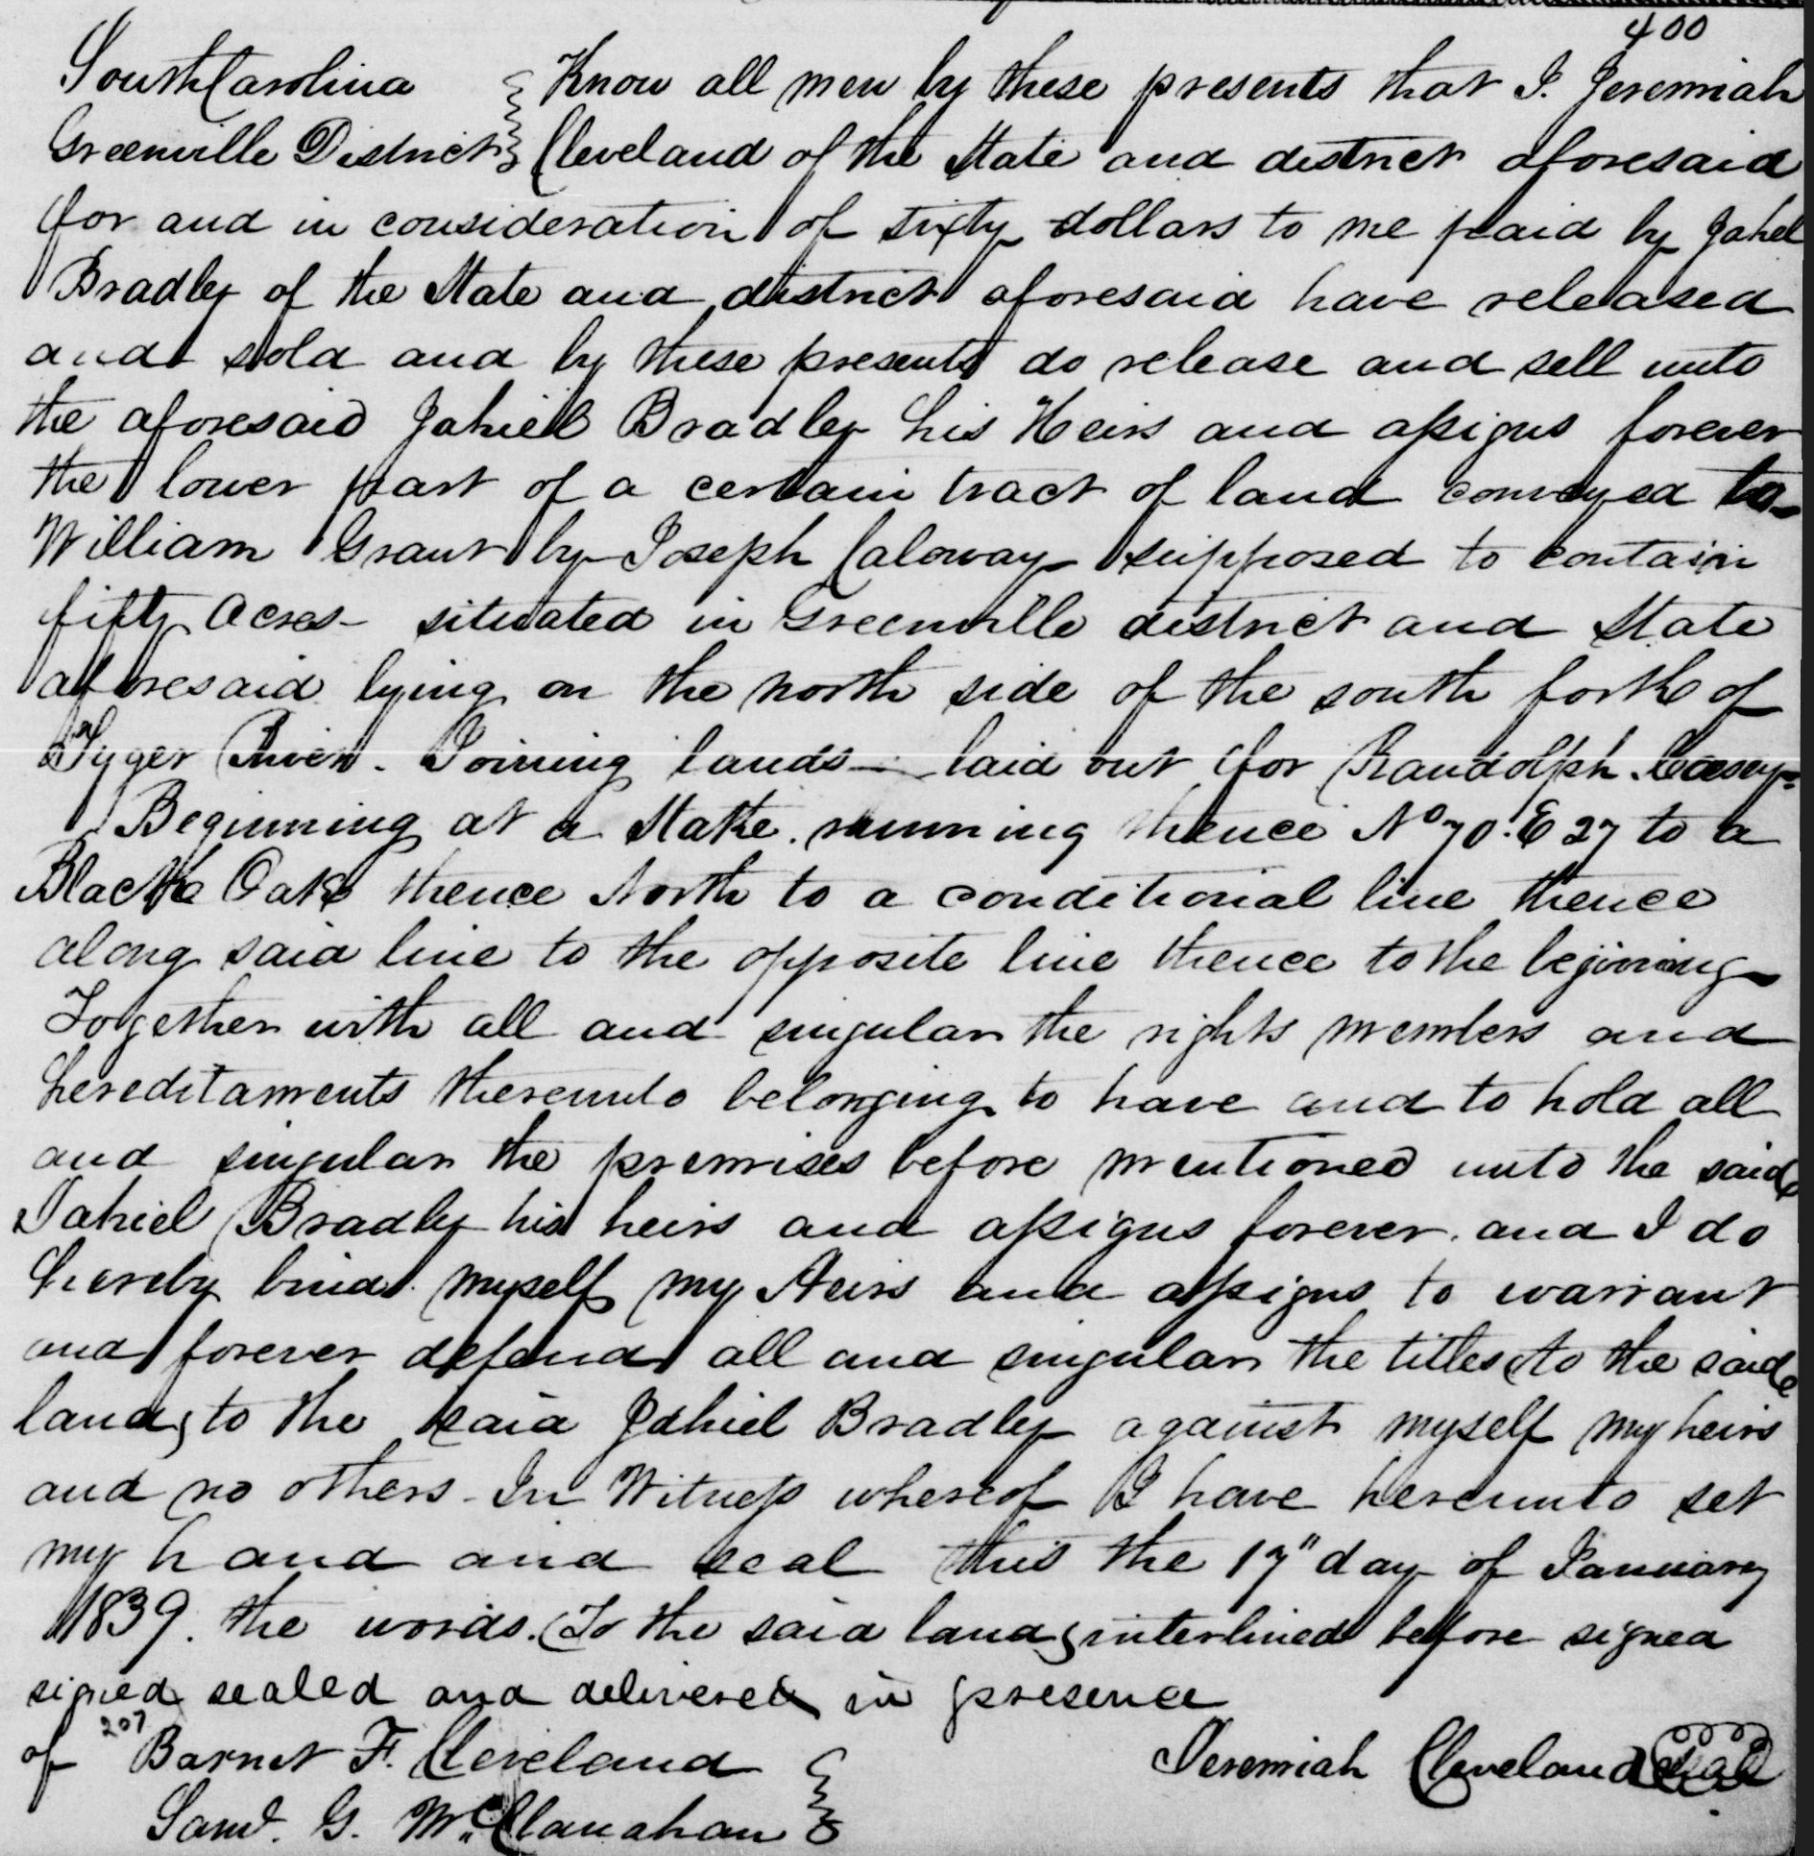 400
South Carolina } Know all men by these presents that I. Jeremiah
Greenville District } Cleveland of the State and district aforesaid
for and in consideration of sixty dollars to me paid by Jahel
Bradley of the State and district aforesaid have released
and sold and by these presents do release and sell unto
the aforesaid Jahiel Bradley his Heirs and assigns forever
the lower part of a certain tract of land conveyed to
William Grant by Joseph Caloway supposed to contain
fifty Acres - situated in Greenville district and State
aforesaid lying on the north side of the south fork of
Tyger River. Joining lands laid out for Randolph Casey.
Beginning at a Stake. running thence No 70. E 27 to a
Black Oak thence North to a conditional line thence
along said line to the opposite line thence to the begining
Together with all and singular the rights members and
hereditaments thereunto belonging to have and to hold all
and singular the premises before mentioned unto the said
Jahiel Bradley his heirs and assigns forever. and I do
hereby bind myself my Heirs and assigns to warrant
and forever defend all and singular the titles (to the said
land) to the said Jahiel Bradley against myself my heirs
and no others - In Witness whereof I have hereunto set
my hand and seal this the 17" day of January
1839. the words. (To the said land) interlined before signed
signed sealed and delivered in presence
of 207 Barnet F. Cleveland } Jeremiah Cleveland Seal
Saml. G. McClanahan }